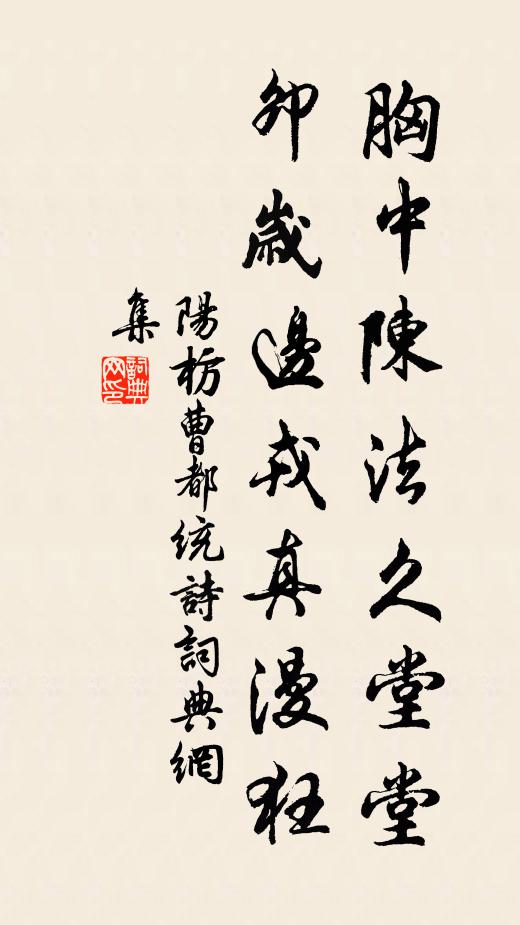 胸中陳法久堂堂
卯歲邊戎真漫狂
陽枋曹都統詩詞典網
集
詞典網印